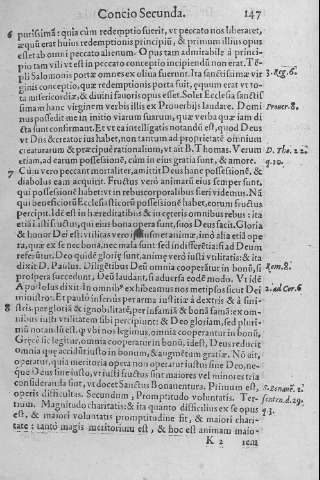 Concio Secunda. 147
6 purissimã: quia cùm redemptio fuerit, vt peccato nos liberaret,
æquũ erat huius redemptionis principiũ, & primum illius opus
esset ab omni peccato alienum. Opus tam admirabile à princi-
pio tam vili vt est in peccato conceptio incipiendũ non erat. Tẽ-
pli Salomonis portæ omnes ex oliua fuerunt. Ita sanctissimæ vir 3. Reg. 6.
ginis conceptio, quæ redemptionis porta fuit, equum erat vt to-
ta misericordiæ, & diuini fauoris opus esset. Solet Ecclesia sanctis
simam hanc virginem verbis illis ex Prouerbijs laudare. Domi Prouer. 8.
nus possedit me in initio viarum suarum, quæ verba quæ iam di
cta sunt confirmant. Et vt ea intelligatis notandũ est, quod Deus
vt Dñs & creator ius habet, non tantum ad proprietatẽ omnium
creaturarum & præcipuè rationalium, vt ait B. Thomas. Verum D. Tho. 22
etiam, ad earum possessionẽ, cùm in eius gratia sunt, & amore. q. 10.
7 Cùm vero peccant mortaliter, amittit Deus hanc possessionẽ, &
diabolus eam acquirit. Fructus verò animarũ eius semper sunt,
qui possessionẽ habet vt in rebus corporalibus seruidemus. Nã
qui beneficiorũ Ecclesiasticorũ possessionẽ habet, eorum fructus
percipit. Idẽ est in hæreditatibus & in cęteris omnibus rebus: ita
etiã illius fructus, qui eius bona opera sunt, suos Deus facit. Gloria
& honor Dei est: vtilitas verò ipsius est animæ, imò alia etiã ope
ra, quæ ex se nec bona, nec mala sunt sed indifferẽtia: si ad Deum
referũtur. Deo quidẽ glorię sunt, animę verò iusti vtilitatis: & ita
dixit D. Paulus. Diligẽtibus Deũ omnia cooperãtur in bonũ, si Rom. 8.
prospera succedunt, Deũ laudant, si aduersa eodẽ modo. Vt idẽ
Apostolus dixit. In omnibꝰ exhibeamus nosmetipsos sicut Dei 2. ad Cor. 6
ministros. Et pauló inferiùs per arma iustitiæ à dextris & à sini-
8 stris per gloriã & ignobilitatẽ, per infamiã & bonã famã: ex om-
nibus iusti vtilitatem sibi percipiunt: & Deo gloriam, sed pluri-
mũ notandũ est, ꝙ vbi nos legimus, omnia cooperantur in bonũ,
Gręcè sic legitur, omnia cooperantur in bonũ, id est, Deus reducit
omnia quæ accidũt iusto in bonum, & augmẽtum gratiæ. Nõ ait,
operatur, quia meritoria opera non operatur iustus sine Deo, ne-
que Deus sine iusto, vt iusti fructus sint maiores vel minores tria
consideranda sunt, vt docet Sanctus Bonauentura. Primum est, S. Bonauẽ. 2.
operis difficultas. Secundum, Promptitudo voluntatis. Ter- senten. d. 29.
tium. Magnitudo charitatis: & ita quanto difficilius ex se opus q. 3.
est, & maiori voluntatis promptitudine fit, & maiori chari-
tate: tantò magis meritorium est, & hoc est animam maio-
K 2 rem